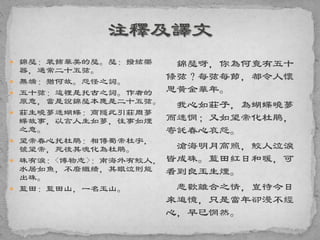 注釋及譯文
錦瑟：裝飾華美的瑟。瑟：撥絃樂
器，通常二十五弦。
無端：猶何故。怨怪之詞。
五十弦：這裡是托古之詞。作者的
原意，當是說錦瑟本應是二十五弦。
莊生曉夢迷蝴蝶：商隱此引莊周夢
蝶故事，以言人生如夢，往事如煙
之意。
望帝春心托杜鵑：相傳蜀帝杜宇，
號望帝，死後其魂化為杜鵑。
珠有淚：《博物志》：南海外有鮫人，
水居如魚，不廢織績，其眼泣則能
出珠。
藍田：藍田山，一名玉山。
錦瑟呀，你為何竟有五十
條弦？每弦每節，都令人懷
思黃金華年。
我心如莊子，為蝴蝶曉夢
而迷惘；又如望帝化杜鵑，
寄託春心哀怨。
滄海明月高照，鮫人泣淚
皆成珠。藍田紅日和暖，可
看到良玉生煙。
悲歡離合之情，豈待今日
來追憶，只是當年卻漫不經
心，早已惘然。